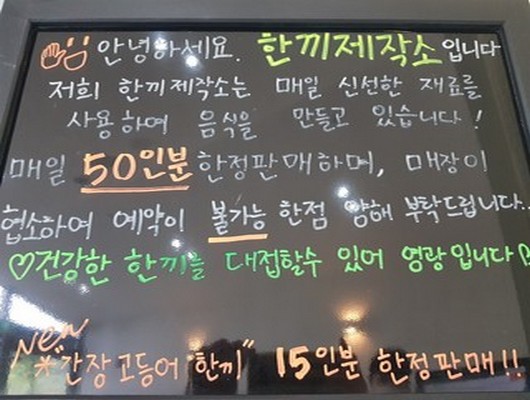 안녕하세요. 한끼제작소입니다
저희 한끼제작소는 매일 신선한 재료를
사용하여 음식을 만들고 있습니다!
매일 50인분 한정판매하며, 매장이
협소하여 예약이 불가능 한점 양해 부탁드립니다.
♡건강한 한끼를 대접할수 있어 영광입니다♡
New
*"간장고등어 한끼" 15인분 한정판매!!